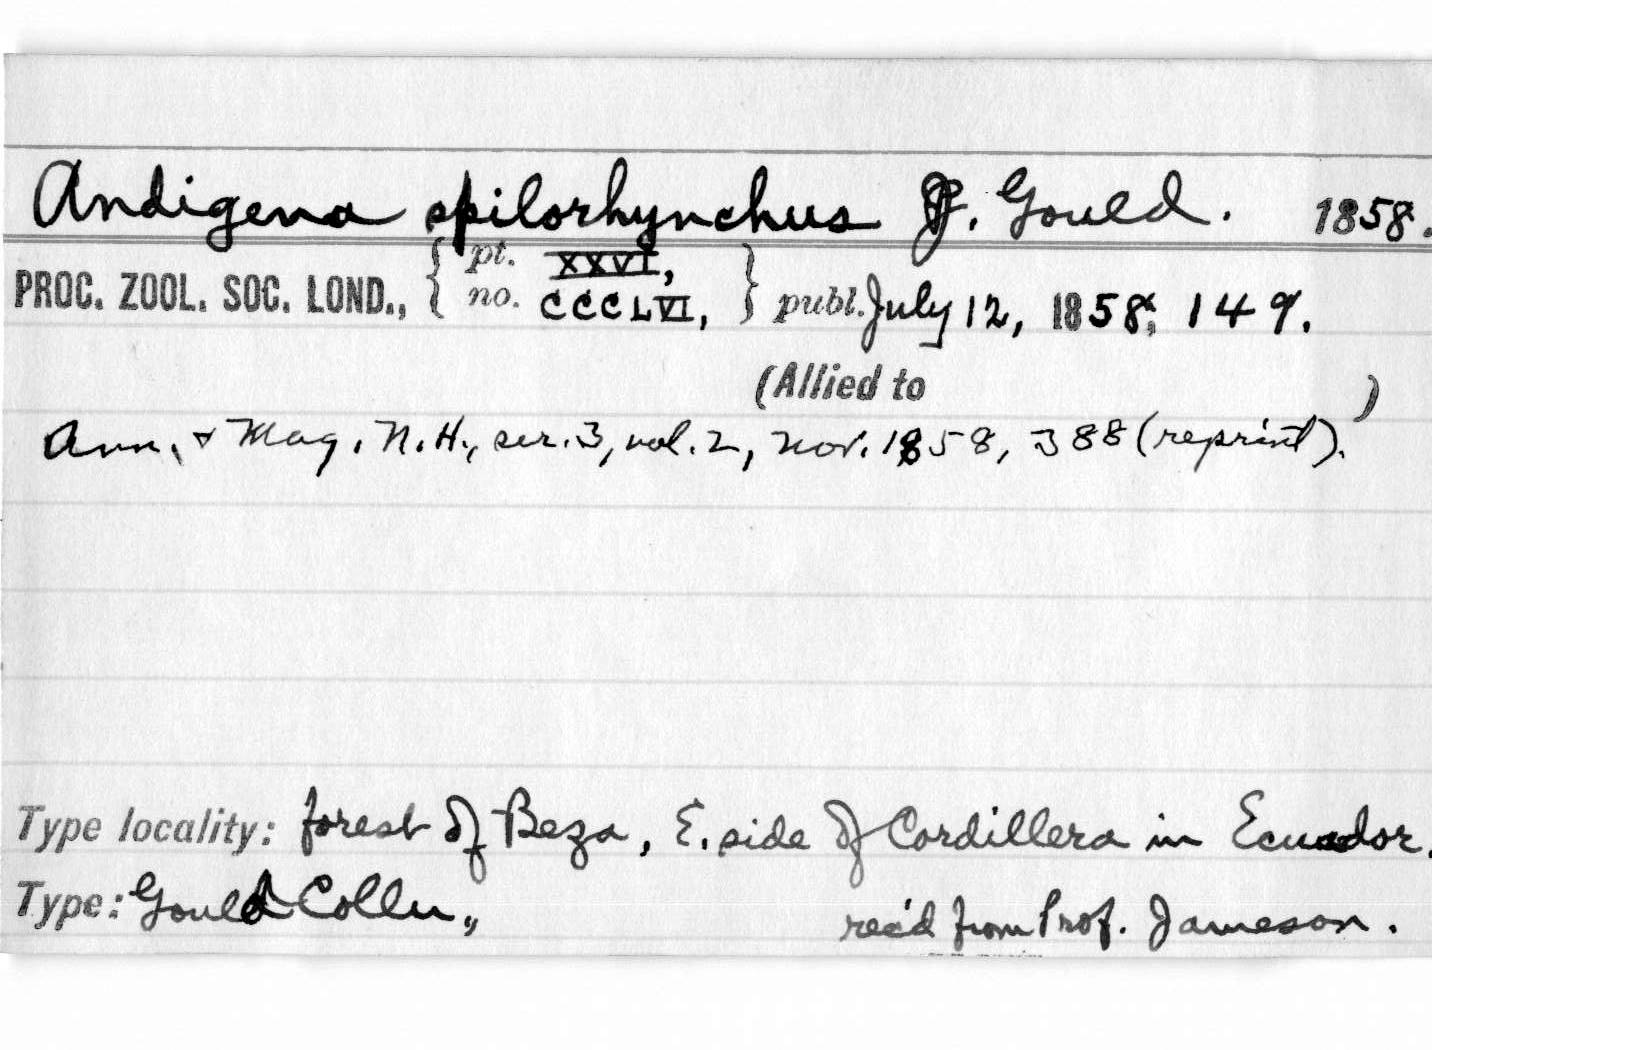 Andigena spilorhynchus J. Gould. 1858.
pt. XXVI,
PROC. ZOOL. SOC. LOND., no. CCCLVI, publ. July 12, 1858, 149.
(Allied to )
Ann. & Mag. N.H., ser. 3, vol. 2, Nov. 1858, 388 (reprint).
Type locality: forest of Beza, E. side of Cordillera in Ecuador.
Type: Gould Colln., rec'd from Prof. Jameson.